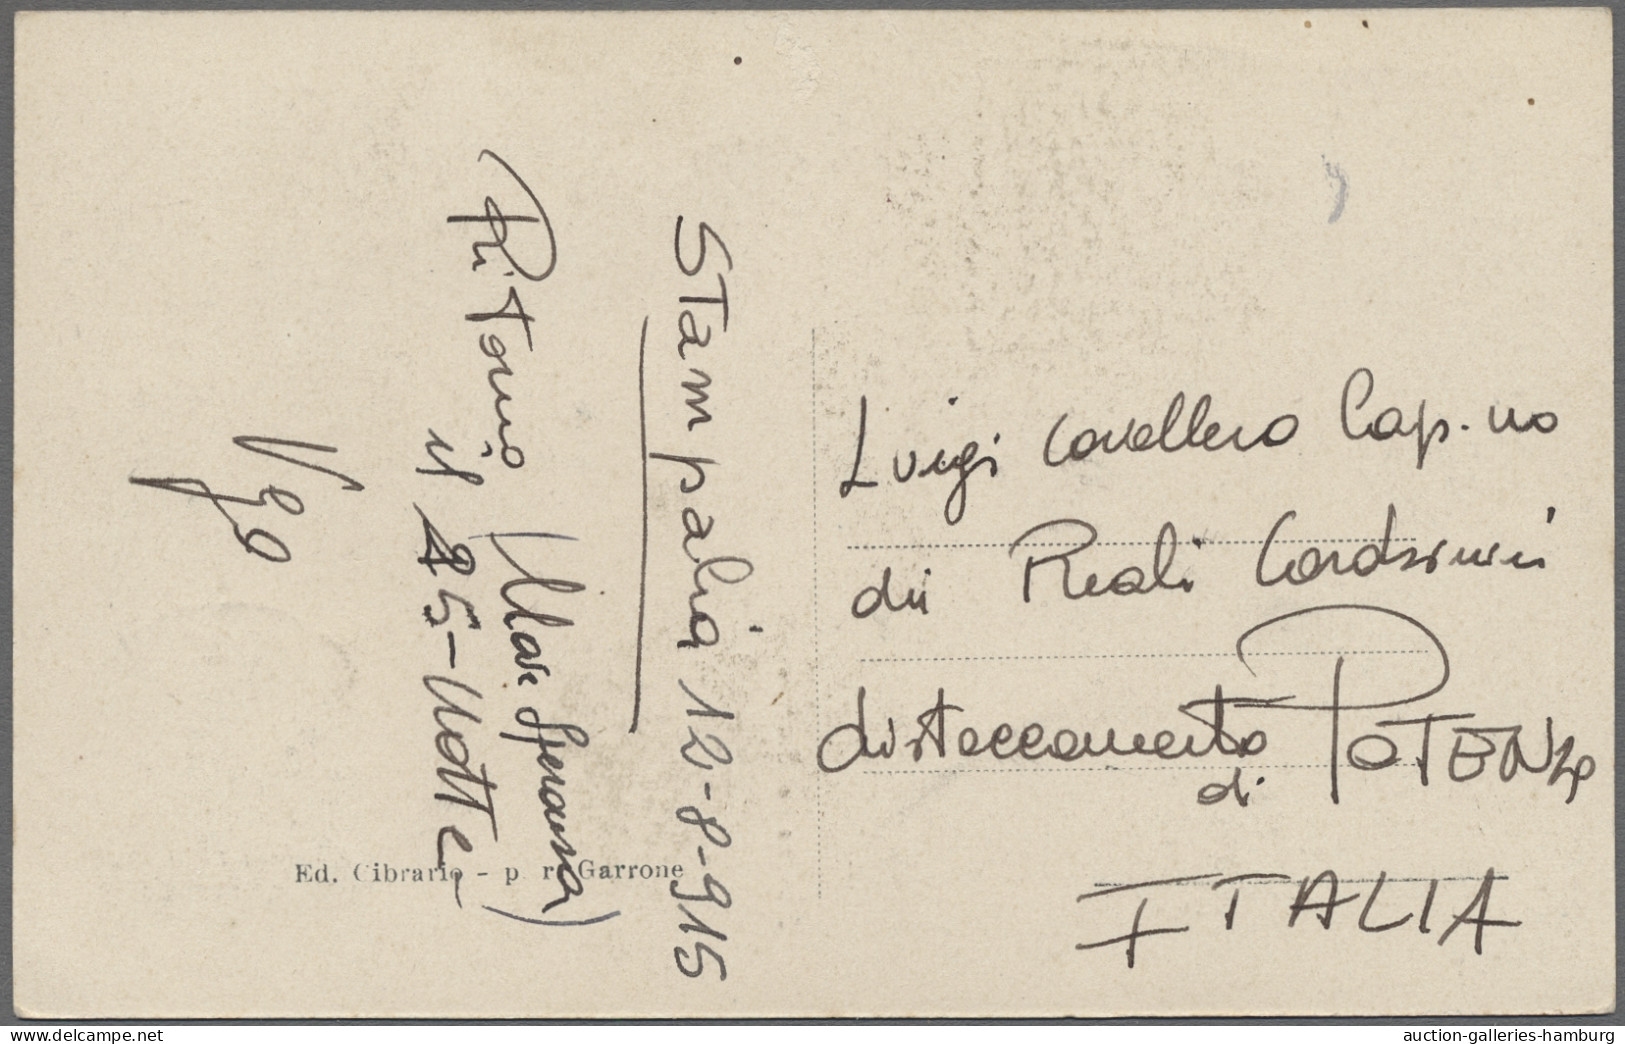 Stampalia 12-8-915
Ritorno
il 25-Notte
Ugo
Luigi Cavallero Cap.no
dei Reali Carabinieri
distaccamento
di POTENZA
ITALIA
Ed. Cibrario - p. r. Garrone
www.delcampe.net
auction-galleries-hamburg